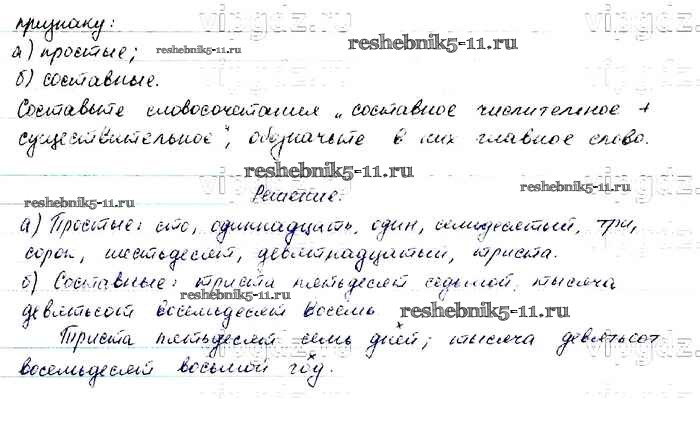 признаку:
а) простые;
б) составные.
Составьте словосочетания „составное числительное +
существительное“, обозначьте в них главное слово.
Решение:
а) Простые: сто, одиннадцать, один, семидесятый, три,
сорок, шестьдесят, девятнадцатый, триста.
б) Составные: триста пятьдесят седьмой, тысяча
девятьсот восемьдесят восемь.
Триста пятьдесят семь дней; тысяча девятьсот
восемьдесят восьмой год.
reshebnik5-11.ru
reshebnik5-11.ru
reshebnik5-11.ru
reshebnik5-11.ru
reshebnik5-11.ru
reshebnik5-11.ru
reshebnik5-11.ru
reshebnik5-11.ru
vipgdz.ru
vipgdz.ru
vipgdz.ru